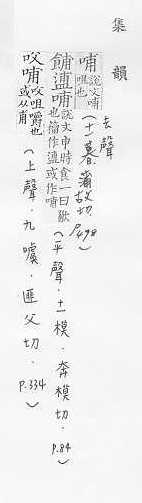 集韻
去聲
哺 說文哺咀也 (十一暮 蒲故切 P.498)
餔𥂈哺 說文申時食一曰歠也籀作𥂈或作哺 (平聲.十一模.奔模切.P.84)
㕮哺 㕮咀嚼也或从甫 (上聲.九噳.匪父切.P.334)